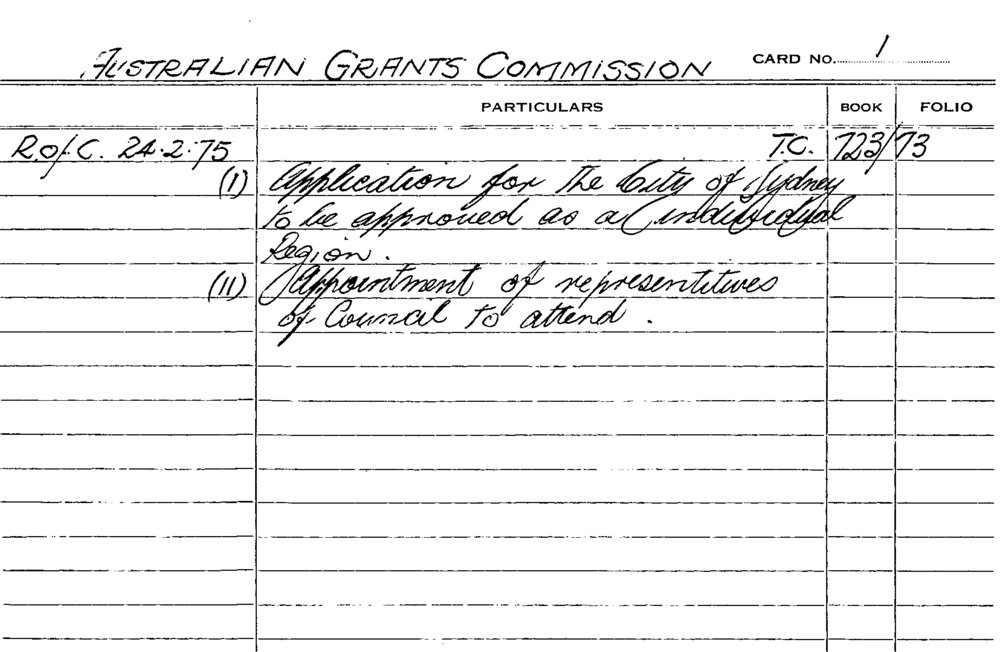 AUSTRALIAN GRANTS COMMISSION CARD NO. 1
PARTICULARS BOOK FOLIO
R.of.C. 24.2.75 T.C. 723/73
(I) Application for the City of Sydney
to be approved as a individual
Region.
(II) Appointment of representitives
of Council to attend.